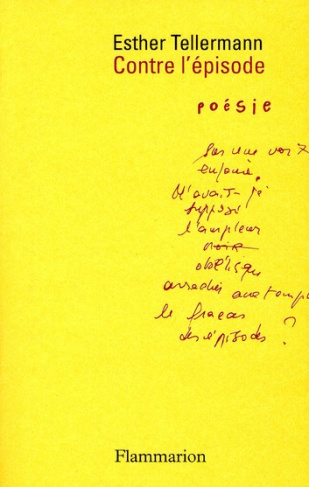 Esther Tellermann
Contre l'épisode
poésie
Sur une voix
enfouie,
N'avait-je
supposé
l'ampleur
noire
oblique
arrachée aux temps
le fracas
des épisodes ?
Flammarion